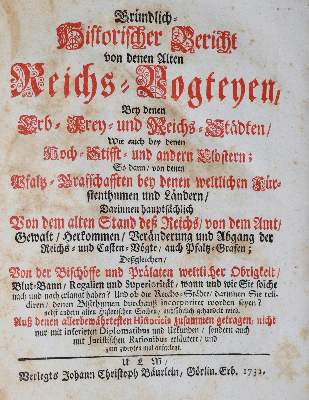 Gründlich-
Historischer Bericht
von denen Alten
Reichs-Vogteyen/
Bey denen
Erb- Frey- und Reichs-Städten/
Wie auch bey denen
Hoch-Stifft- und andern Clöstern;
So dann/ von denen
Pfaltz-Graffschafften bey denen weltlichen Für-
stenthumen und Ländern/
Darinnen hauptsächlich
Von dem alten Stand deß Reichs/ von dem Amt/
Gewalt/ Herkommen/ Veränderung und Abgang der
Reichs- und Casten-Vögte/ auch Pfaltz-Grafen;
Deßgleichen/
Von der Bischöffe und Prälaten weltlicher Obrigkeit/
Blut-Bann/ Regalien und Superiorität/ wann und wie Sie solche
nach und nach erlangt haben? Und ob die Reichs-Städte/ darinnen Sie resi-
diren/ denen Bistthumen durchauß incorporiret worden seyen?
nebst andern alten Historischen Sachen/ außführlich gehandelt wird.
Auß denen allerbewährtesten Historicis zusammen getragen/ nicht
nur mit inserirten Diplomatibus und Uhrkunden/ sondern auch
mit Juristischen Rationibus erläutert/ und
zum zweyten mal aufgelegt.
ULM/
Verlegts Johann Christoph Bäurlein/ Görlin. Erb. 1731.